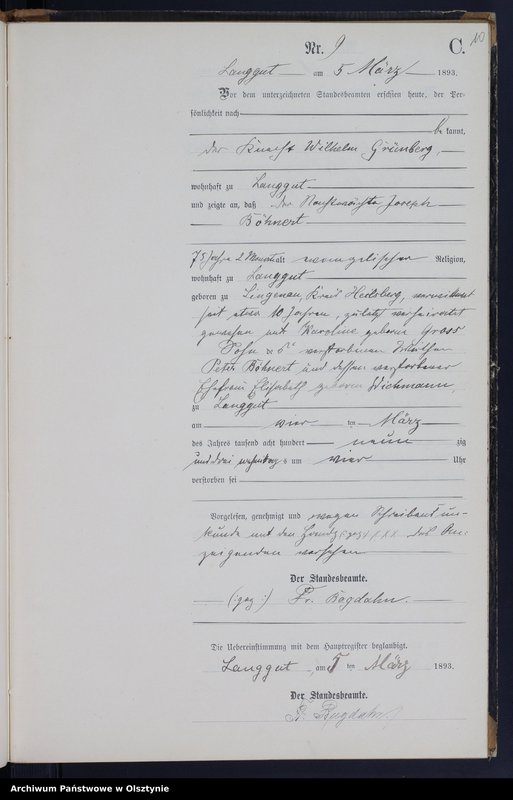 10
Nr. 9 C.
Langgut am 5 März 1893.
Vor dem unterzeichneten Standesbeamten erschien heute, der Per-
sönlichkeit nach
be kannt,
der Knecht Wilhelm Grünberg,
wohnhaft zu Langgut
und zeigte an, daß der Nachtwächter Joseph
Böhnert
75 Jahre 2 Monat alt evangelischer Religion,
wohnhaft zu Langgut
geboren zu Lingenau, Kreis Heilsberg, verwittwet
seit etwa 10 Jahren, zuletzt verheirathet
gewesen mit Karoline geborene Gross
Sohn des verstorbenen
Peter Böhnert und dessen verstorbener
Ehefrau Elisabeth geborene Wichmann,
zu Langgut
am vier ten März
des Jahres tausend acht hundert neun zig
und drei um vier Uhr
verstorben sei
Vorgelesen, genehmigt und wegen Schreibensun-
kunde mit den Handzeichen des An-
zeigenden versehen
Der Standesbeamte.
(:gez:) Fr. Bogdahn.
Die Uebereinstimmung mit dem Hauptregister beglaubigt.
Langgut, am 5 ten März 1893.
Der Standesbeamte.
Fr. Bogdahn
Archiwum Państwowe w Olsztynie